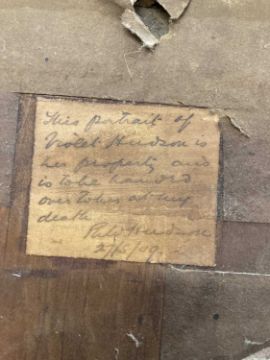 This portrait of
Violet Hudson is
her property and
is to be handed
over to her at my
death
Hudson
2/5/09